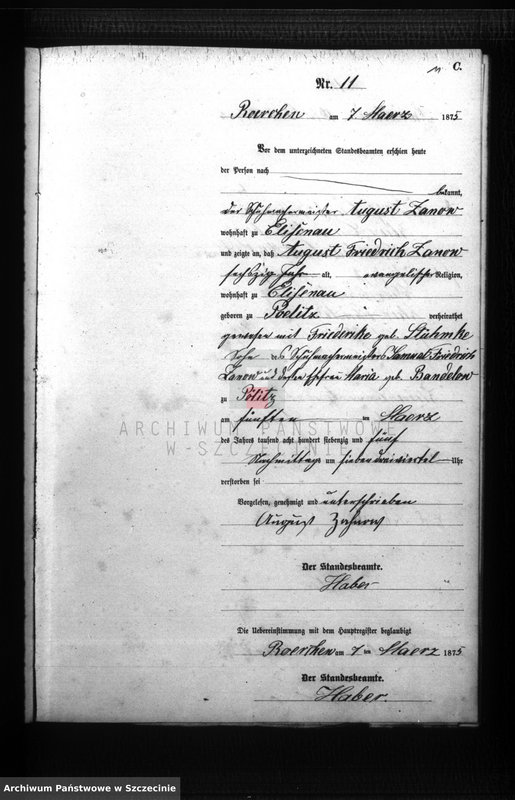 C.
Nr. 11
Roerchen am 7 Maerz 1875
Vor dem unterzeichneten Standesbeamten erschien heute
der Person nach
bekannt,
der Schuhmachermeister August Zanow
wohnhaft zu Elisenau
und zeigte an, daß August Friedrich Zanow
sechszig Jahr alt, evangelischer Religion,
wohnhaft zu Elisenau
geboren zu Poelitz verheirathet
gewesen mit Friederike geb. Stühmke
Sohn des Schuhmachermeisters Samuel Friedrich
Zanow und dessen Ehefrau Maria geb. Bandelow
zu Pölitz
am fünften ten Maerz
des Jahres tausend acht hundert siebenzig und fünf
Nachmittags um sieben dreiviertel Uhr
verstorben sei
Vorgelesen, genehmigt und unterschrieben
August Zahnow
Der Standesbeamte.
Haber
Die Uebereinstimmung mit dem Hauptregister beglaubigt
Roerchen am 7 ten Maerz 1875
Der Standesbeamte.
Haber.
ARCHIWUM PAŃSTWOWE
W SZCZECINIE
Archiwum Państwowe w Szczecinie